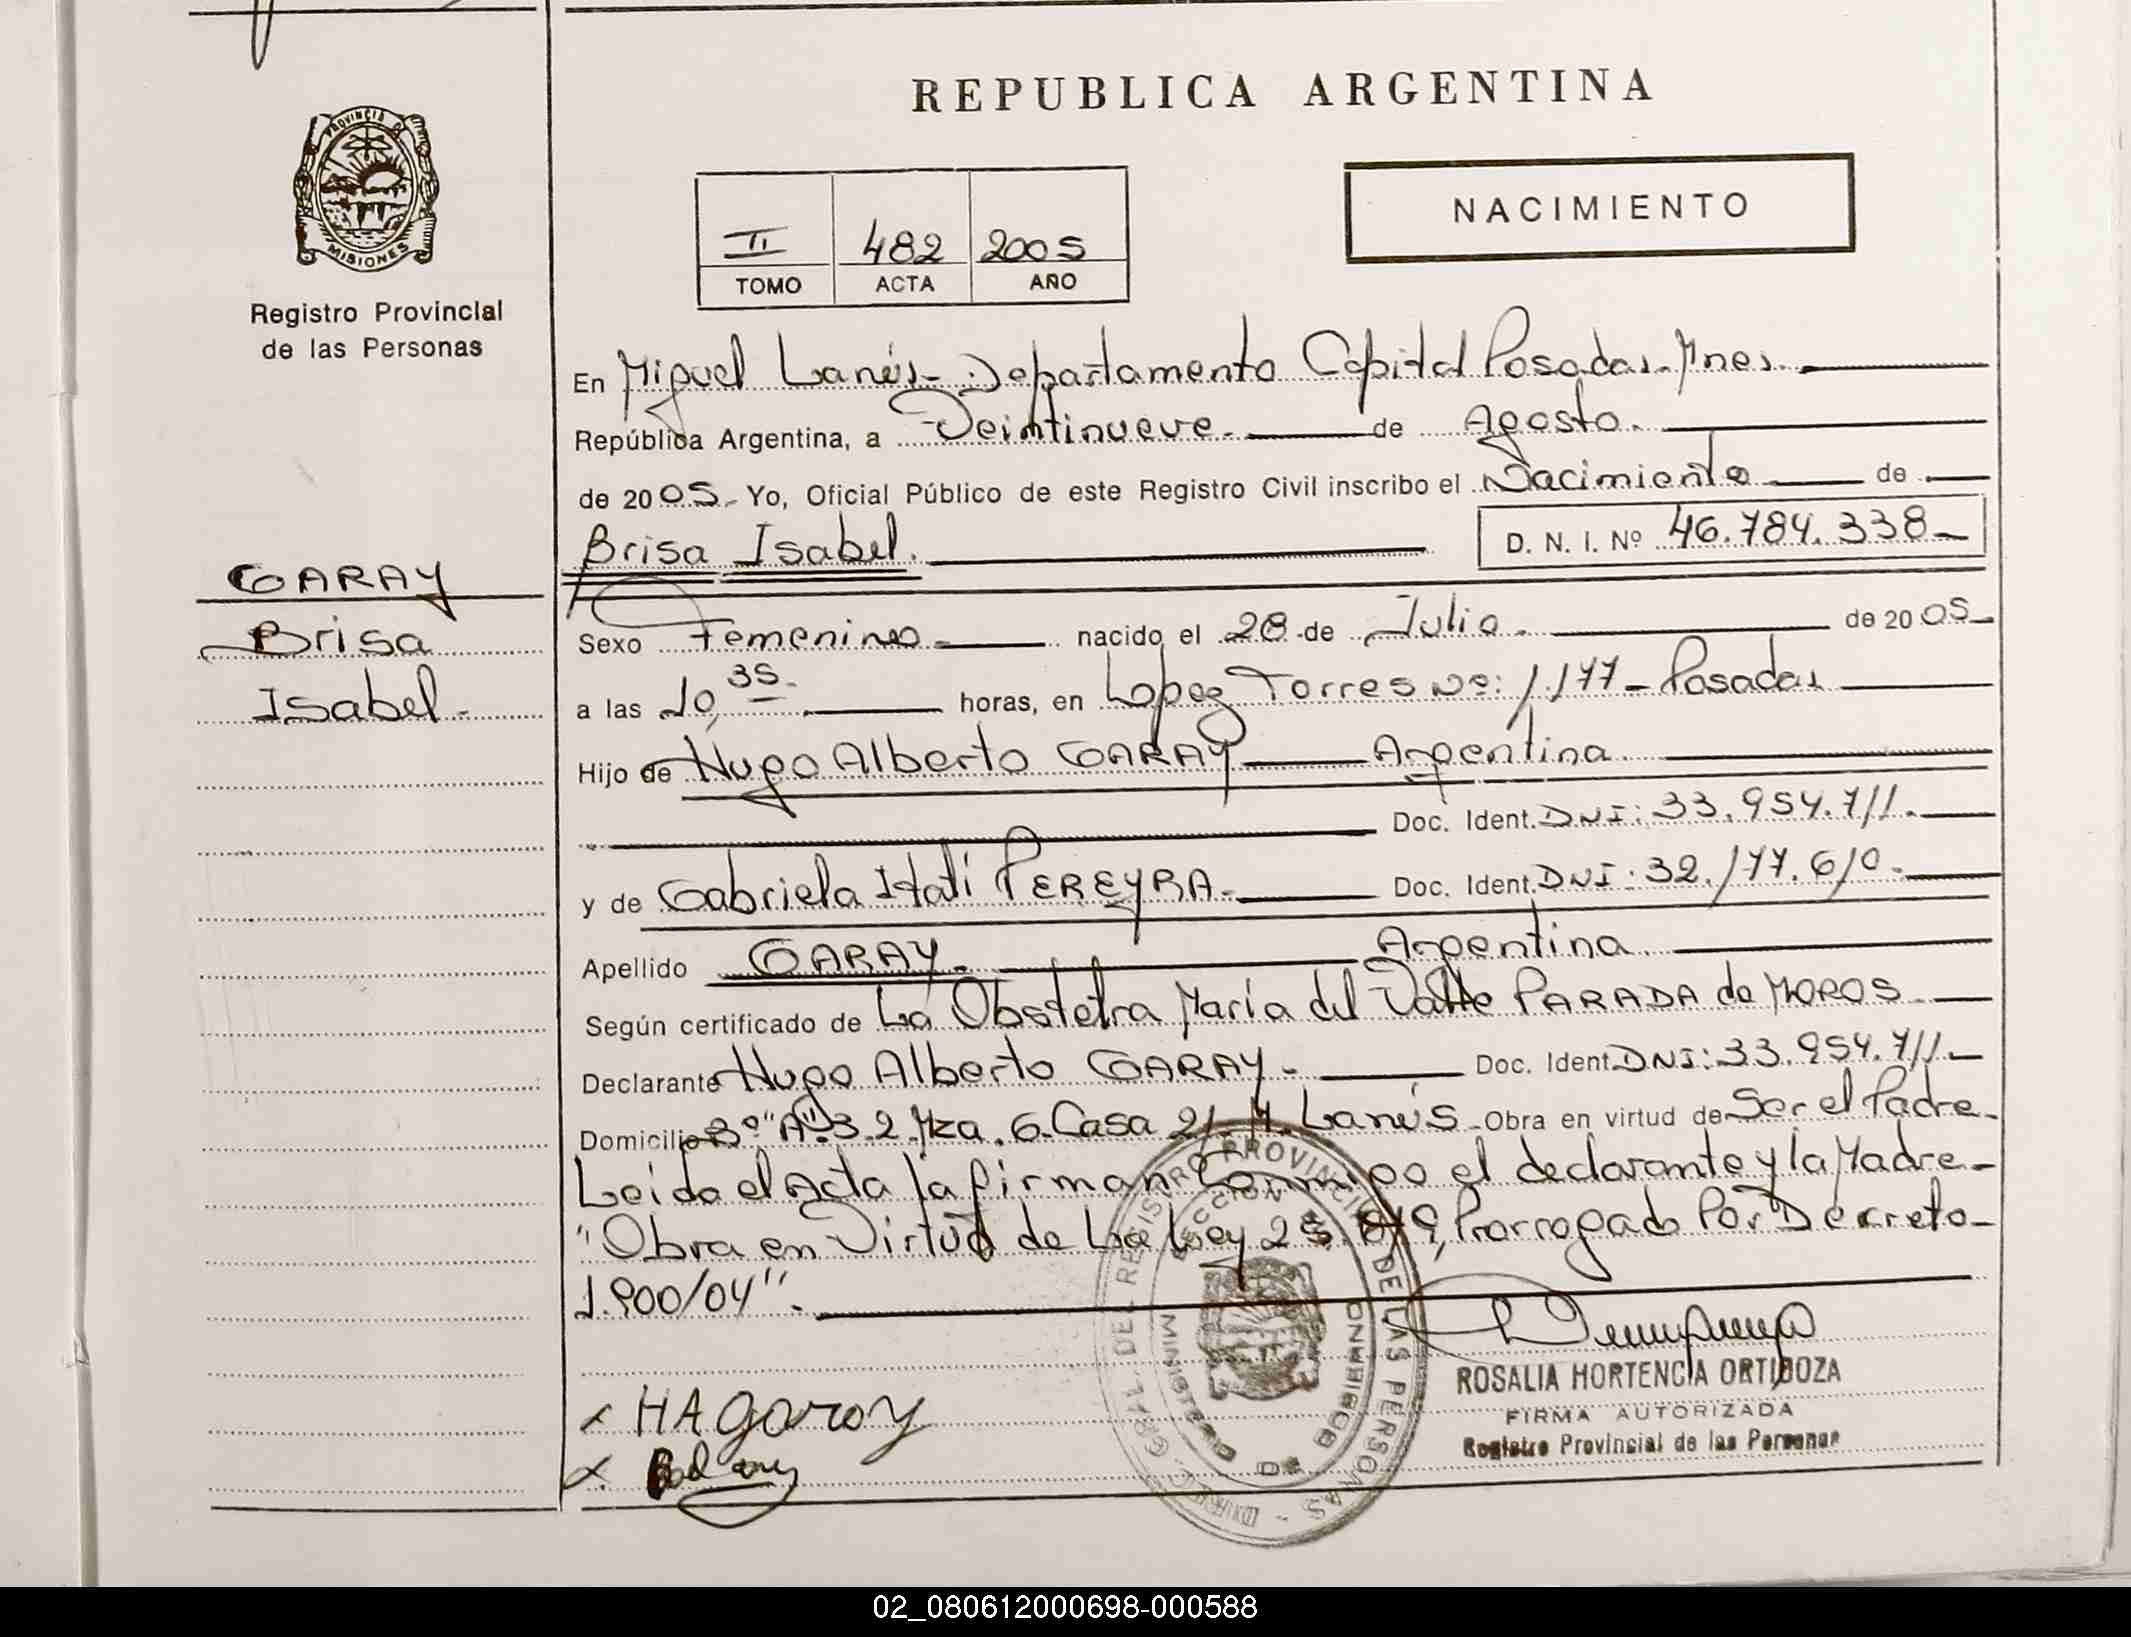 REPUBLICA ARGENTINA
PROVINCIA DE
MISIONES
Registro Provincial
de las Personas
II 482 2005
TOMO ACTA AÑO
NACIMIENTO
En Miguel Lanús - Departamento Capital Posadas. Mnes.
República Argentina, a Veintinueve. de Agosto.
de 2005.- Yo, Oficial Público de este Registro Civil inscribo el Nacimiento de
Brisa Isabel. D. N. I. Nº 46.784.338-
GARAY
Brisa
Isabel.-
Sexo Femenino nacido el 28 de Julio. de 2005-
a las 10,35.- horas, en Lopez Torres Nº: 1.177 - Posadas
Hijo de Hugo Alberto GARAY Argentina.
Doc. Ident. DNI: 33.954.711.
y de Gabriela Itati PEREYRA.- Doc. Ident. DNI: 32.177.610.-
Apellido GARAY.- Argentina.
Según certificado de La Obstetra María del Valle PARADA de MOROS.
Declarante Hugo Alberto GARAY.- Doc. Ident. DNI: 33.954.711.-
Domicilio Bº "A" 3.2 Mza. 6. Casa 21. M. Lanús - Obra en virtud de Ser el Padre.
Leida el Acta la firman Conmigo el declarante y la Madre.-
"Obra en Virtud de La Ley 25.819, Prorrogado Por Decreto-
1.900/04".
x HAGaray
x.
ROSALIA HORTENCIA ORTIBOZA
FIRMA AUTORIZADA
Registro Provincial de las Personas
DEL REGISTRO PROVINCIAL DE LAS PERSONAS
MINISTERIO DE GOBIERNO
02_080612000698-000588